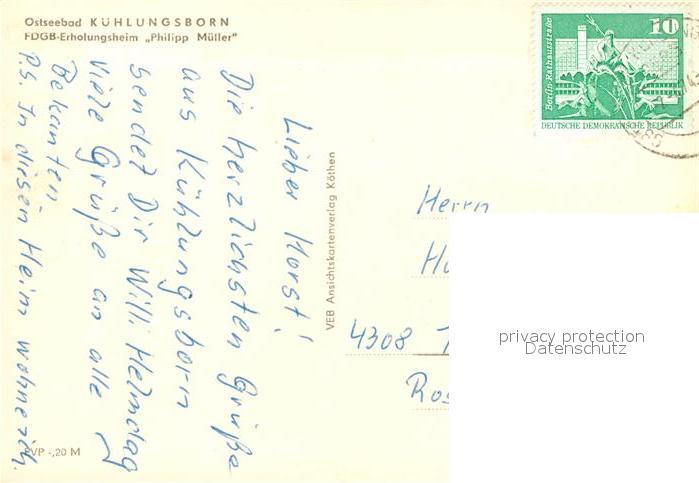 Ostseebad KÜHLUNGSBORN
FDGB-Erholungsheim „Philipp Müller"
Lieber Horst!
Die herzlichsten Grüße
aus Kühlungsborn
sendet Dir Willi
Viele Grüße an alle
Bekannten
P.S. In diesen Heim wohne ich.
EVP -,20 M
VEB Ansichtskartenverlag Köthen
10
Berlin-Rathausstraße
DEUTSCHE DEMOKRATISCHE REPUBLIK
Herrn
4308
privacy protection
Datenschutz